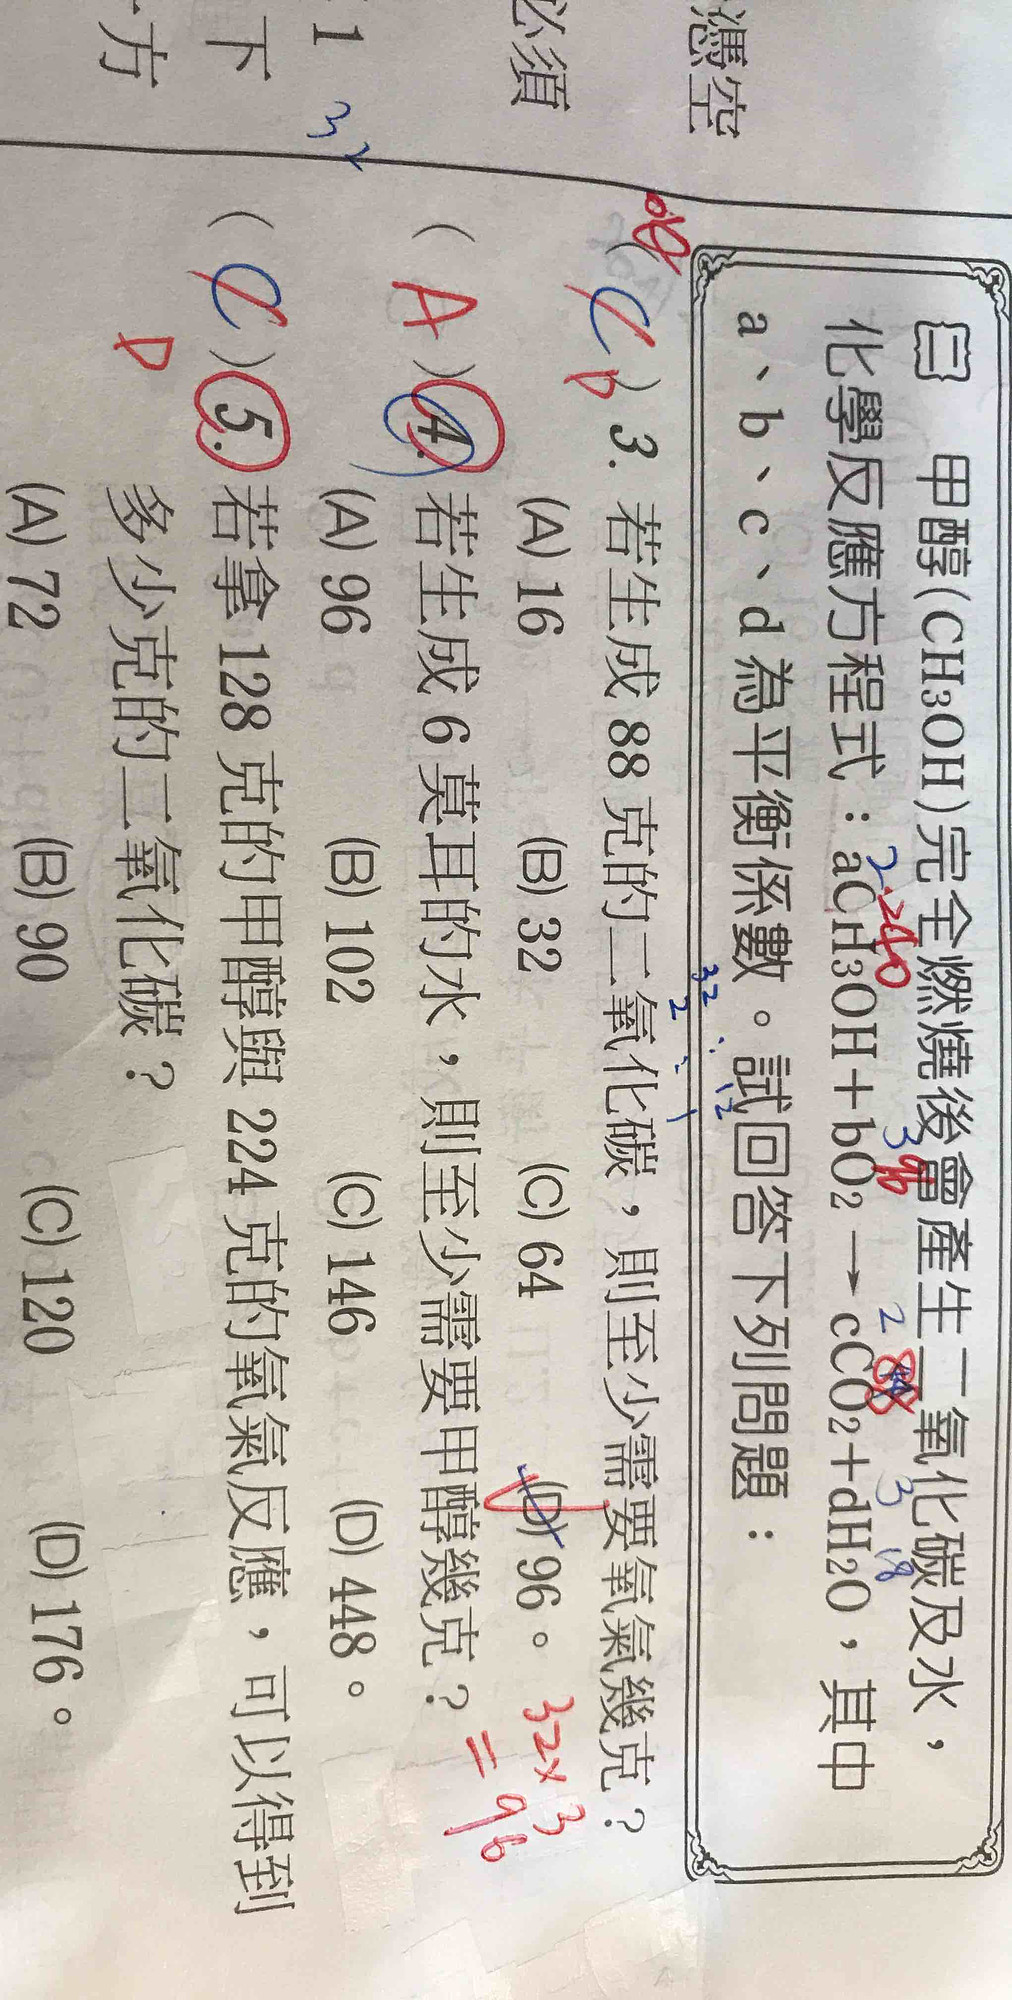 憑空
必須
1
下
方
32
㈡ 甲醇(CH3OH)完全燃燒後會產生二氧化碳及水，
化學反應方程式：aCH3OH＋bO2 → cCO2＋dH2O，其中
2
3
96
2
88
3
18
a、b、c、d 為平衡係數。試回答下列問題：
32 : 12
2 : 1
( C ) 3. 若生成 88 克的二氧化碳，則至少需要氧氣幾克？
D
(A) 16 (B) 32 (C) 64 (D) 96。
32×3
=96
( A ) 4. 若生成 6 莫耳的水，則至少需要甲醇幾克？
(A) 96 (B) 102 (C) 146 (D) 448。
( C ) 5. 若拿 128 克的甲醇與 224 克的氧氣反應，可以得到
D
多少克的二氧化碳？
(A) 72 (B) 90 (C) 120 (D) 176。